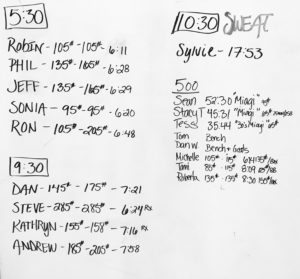 5:30
ROBIN - 105# - 105# - 6:11
PHIL - 135# - 165# - 6:28
JEFF - 135# - 165# - 6:29
SONIA - 95# - 95# - 6:20
RON - 105# - 205# - 6:48
9:30
DAN - 145# - 175# - 7:21
STEVE - 285# - 285# - 6:24 RX
KATHRYN - 155# - 158# - 7:16 RX
ANDREW - 185# - 205# - 7:58
10:30 SWEAT
Sylvie - 17:53
500
Sean 52:30 "Miagi"
Stacy T 45:31 "Miagi"
Tess 35:44 "Miagi"
Tom Bench
Dan W. Bench + Goats
Michelle 105# 115#
Tami 85# 115# 8:09
Roberta 135# 135# 8:30